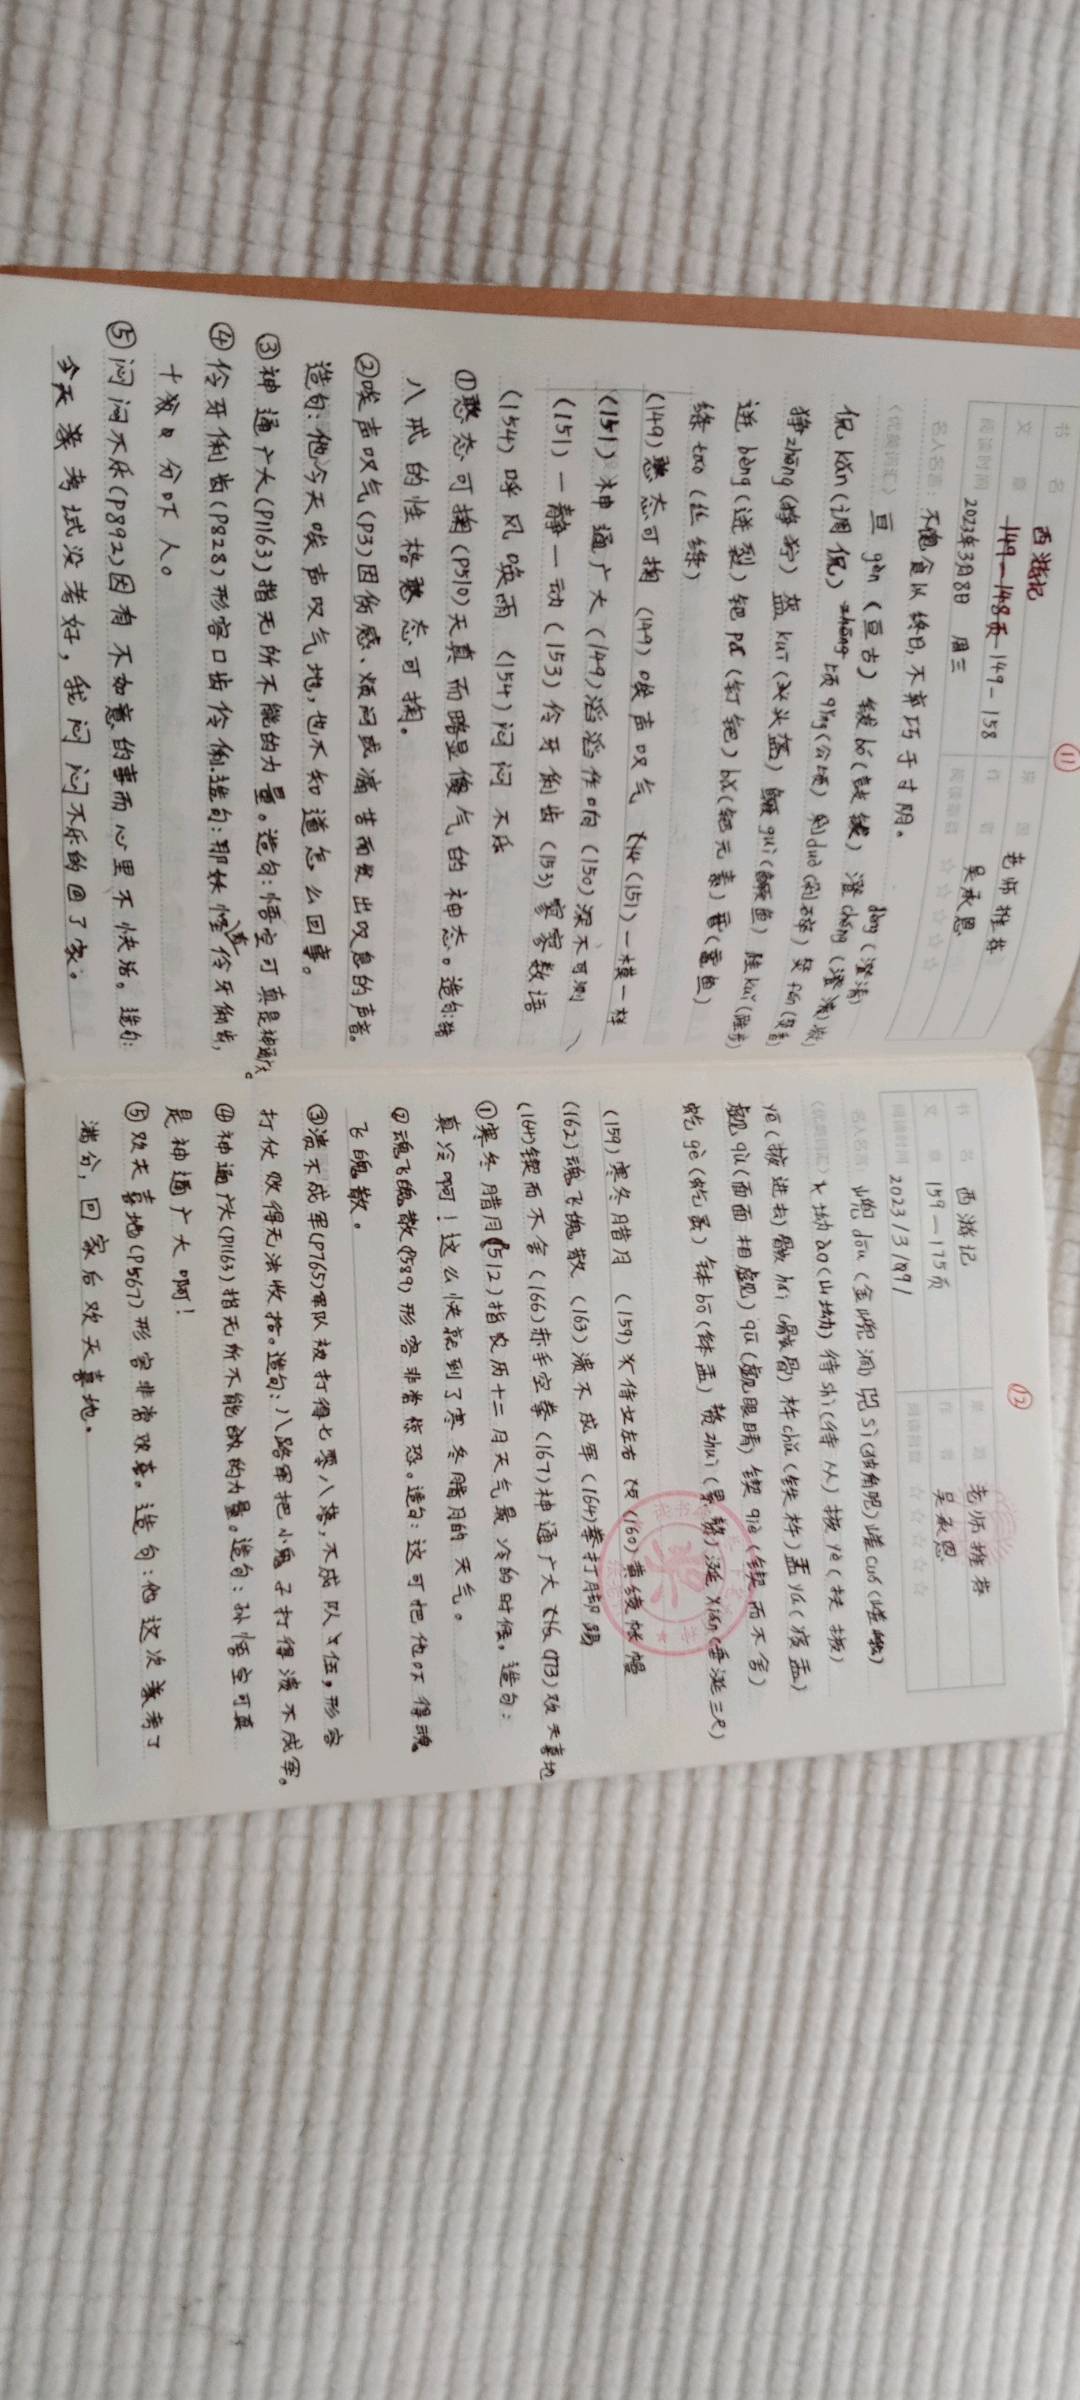 ⑪
书名 西游记
班 老师推荐
文章 149—148页 149—158
作者 吴承恩
阅读时间 2023年3月8日 周三
阅读指数 ☆☆☆☆☆
名人名言:不饱食以终日,不弃功于寸阴。
(优美词汇) 亘gèn(亘古) 钹bó(鼓钹) 澄chéng(澄清)
dèng(澄清)
侃kǎn(调侃) 顷qǐng(公顷) 剁duò(剁碎)
狰zhēng(狰狞) 盔kuī(头盔) 鳜guì(鳜鱼)
迸bèng(迸裂) 钯pá(钉钯) bǎ(钯元素)
绦tāo(丝绦)
(149)憨态可掬 (149)唉声叹气 (151)一模一样
(151)神通广大(149)滔滔作响(150)深不可测
(151)一静一动(153)伶牙俐齿(153)寥寥数语
(154)呼风唤雨 (154)闷闷不乐
①憨态可掬(P510)天真而略显傻气的神态。造句:猪
八戒的性格憨态可掬。
②唉声叹气(P3)因伤感、烦闷或痛苦而发出叹息的声音。
造句:他今天唉声叹气地,也不知道怎么回事。
③神通广大(P1163)指无所不能的力量。造句:悟空可真是神通广大。
④伶牙俐齿(P828)形容口齿伶俐。造句:那妖怪真伶牙俐齿,
十分吓人。
⑤闷闷不乐(P892)因有不如意的事而心里不快活。造句:
今天我考试没考好,我闷闷不乐的回了家。
⑫
书名 西游记
老师推荐
文章 159—175页
作者 吴承恩
阅读时间 2023/3/
阅读指数 ☆☆☆☆☆
名人名言:
(优美词汇) 峒dōu(金峒洞) 兕sì(独角兕) 嵯cuó(嵯峨)
坳ào(山坳) 侍shì(侍从) 掖yè(扶掖)
yē(掖进去) 骸hái(骸骨) 杵chǔ(铁杵) 盂yú(痰盂)
觑qù(面面相觑) qū(觑眼睛) 锲qiè(锲而不舍)
虼gè(虼蚤) 钵bō(钵盂) 赘zhuì(累赘) 涎xián(垂涎三尺)
(159)寒冬腊月 (159)侍女左右 (160)黄绫帐幔
(162)魂飞魄散 (163)溃不成军 (164)拳打脚踢
(164)锲而不舍(166)赤手空拳(167)神通广大(173)欢天喜地
①寒冬腊月(512)指农历十二月天气最冷的时候。造句:
真冷啊!这么快就到了寒冬腊月的天气。
②魂飞魄散(P589)形容非常惊恐。造句:这可把他吓得魂
飞魄散。
③溃不成军(P765)军队被打得七零八落,不成队伍,形容
打仗败得无法收拾。造句:八路军把小鬼子打得溃不成军。
④神通广大(P1163)指无所不能的力量。造句:孙悟空可真
是神通广大啊!
⑤欢天喜地(P567)形容非常欢喜。造句:他这次我考了
满分,回家后欢天喜地。